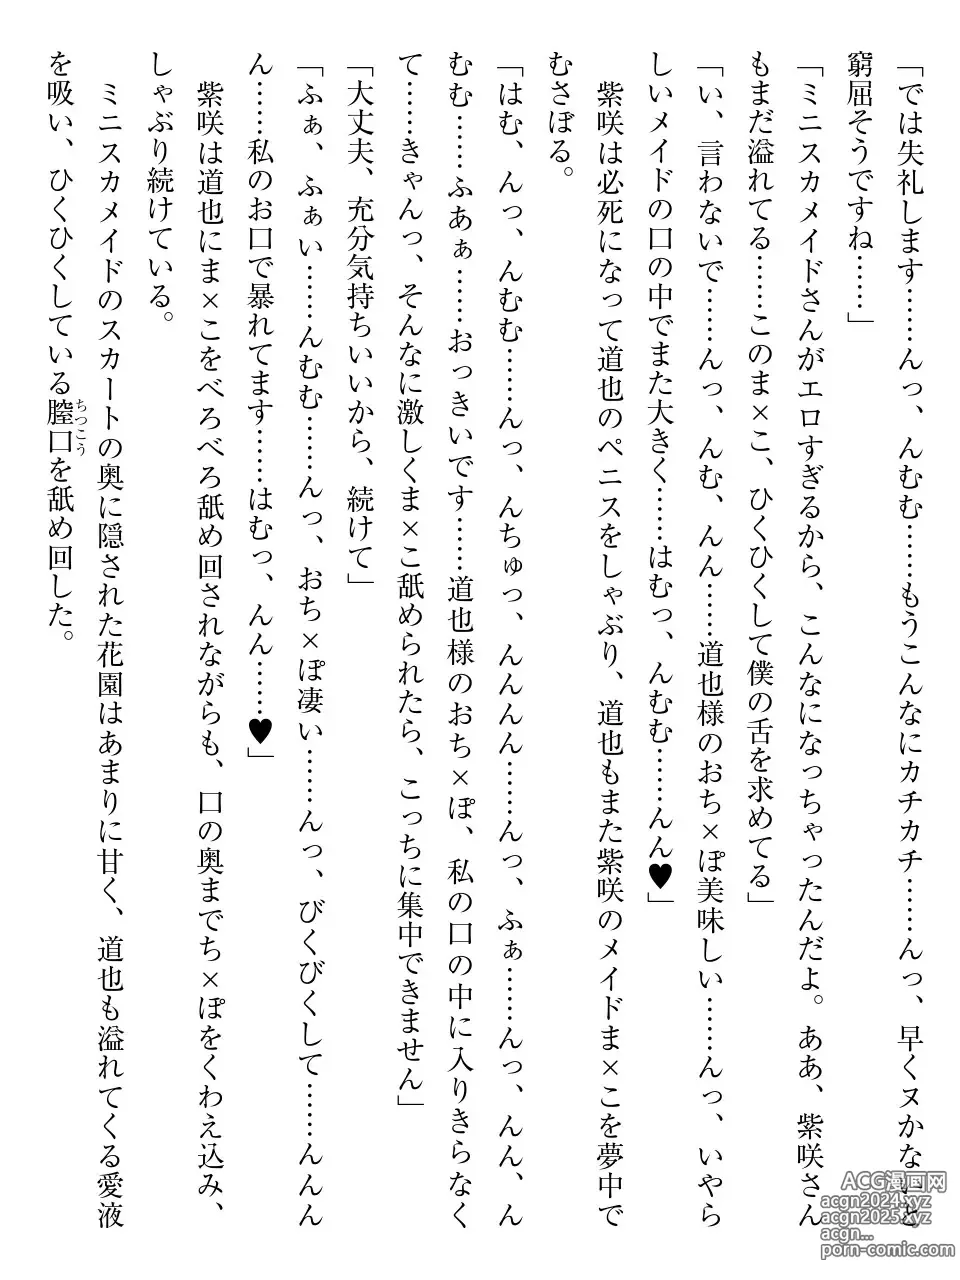 「では失礼します……んっ、んむむ……もうこんなにカチカチ……んっ、早くヌかないと
窮屈そうですね……」
「ミニスカメイドさんがエロすぎるから、こんなになっちゃったんだよ。ああ、紫咲さん
もまだ溢れてる……このま×こ、ひくひくして僕の舌を求めてる」
「い、言わないで……んっ、んむ、んん……道也様のおち×ぽ美味しい……んっ、いやら
しいメイドの口の中でまた大きく……はむっ、んむむ……んん♥」
紫咲は必死になって道也のペニスをしゃぶり、道也もまた紫咲のメイドま×こを夢中で
むさぼる。
「はむ、んっ、んむむ……んっ、んちゅっ、んんんん……んっ、ふぁ……んっ、んん、ん
むむ……ふあぁ……おっきいです……道也様のおち×ぽ、私の口の中に入りきらなく
て……きゃんっ、そんなに激しくま×こ舐められたら、こっちに集中できません」
「大丈夫、充分気持ちいいから、続けて」
「ふぁ、ふぁい……んむむ……んっ、おち×ぽ凄い……んっ、びくびくして……んんん
ん……私のお口で暴れてます……はむっ、んん……♥」
紫咲は道也にま×こをべろべろ舐め回されながらも、口の奥までち×ぽをくわえ込み、
しゃぶり続けている。
ミニスカメイドのスカートの奥に隠された花園はあまりに甘く、道也も溢れてくる愛液
を吸い、ひくひくしている膣口ちつこうを舐め回した。
ACG漫画网
acgn2024.xyz
acgn2025.xyz
acgn...
porn-comic.com